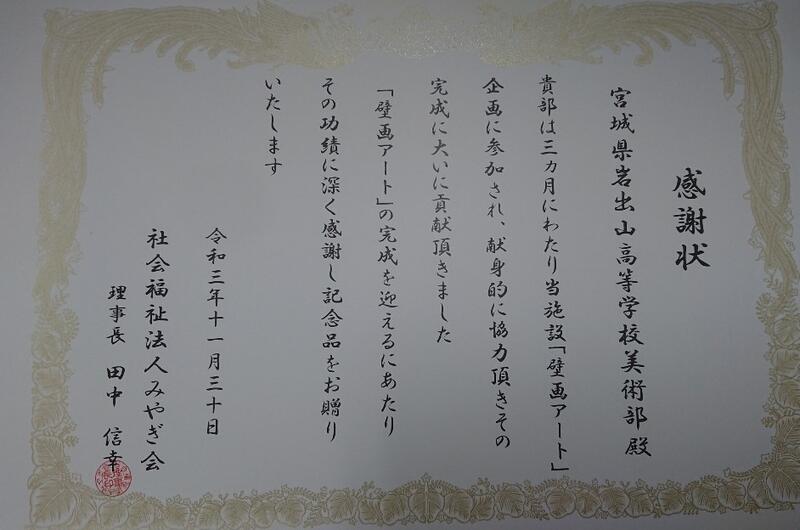 感謝状
宮城県岩出山高等学校美術部殿
貴部は三カ月にわたり当施設「壁画アート」
企画に参加され、献身的に協力頂きその
完成に大いに貢献頂きました
「壁画アート」の完成を迎えるにあたり
その功績に深く感謝し記念品をお贈り
いたします
令和三年十一月三十日
社会福祉法人みやぎ会
理事長 田中 信幸